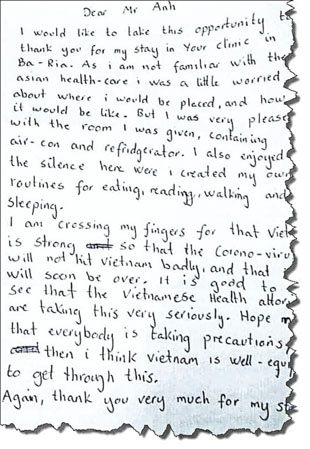 Dear Mr Anh
I would like to take this opportunity to
thank you for my stay in Your clinic in
Ba-Ria. As i am not familiar with the
asian health-care i was a little worried
about where i would be placed, and how
it would be like. But I was very please
with the room I was given, containing
air-con and refridgerator. I also enjoyed
the silence here were i created my own
routines for eating, reading, walking and
sleeping.
I am crossing my fingers for that Viet
is strong so that the Corono-viru
will not hit vietnam badly, and that
will soon be over. It is good to
see that the Vietnamese Health
are taking this very seriously. Hope
that everybody is taking precautions,
then i think vietnam is well-equi
to get through this.
Again, thank you very much for my st